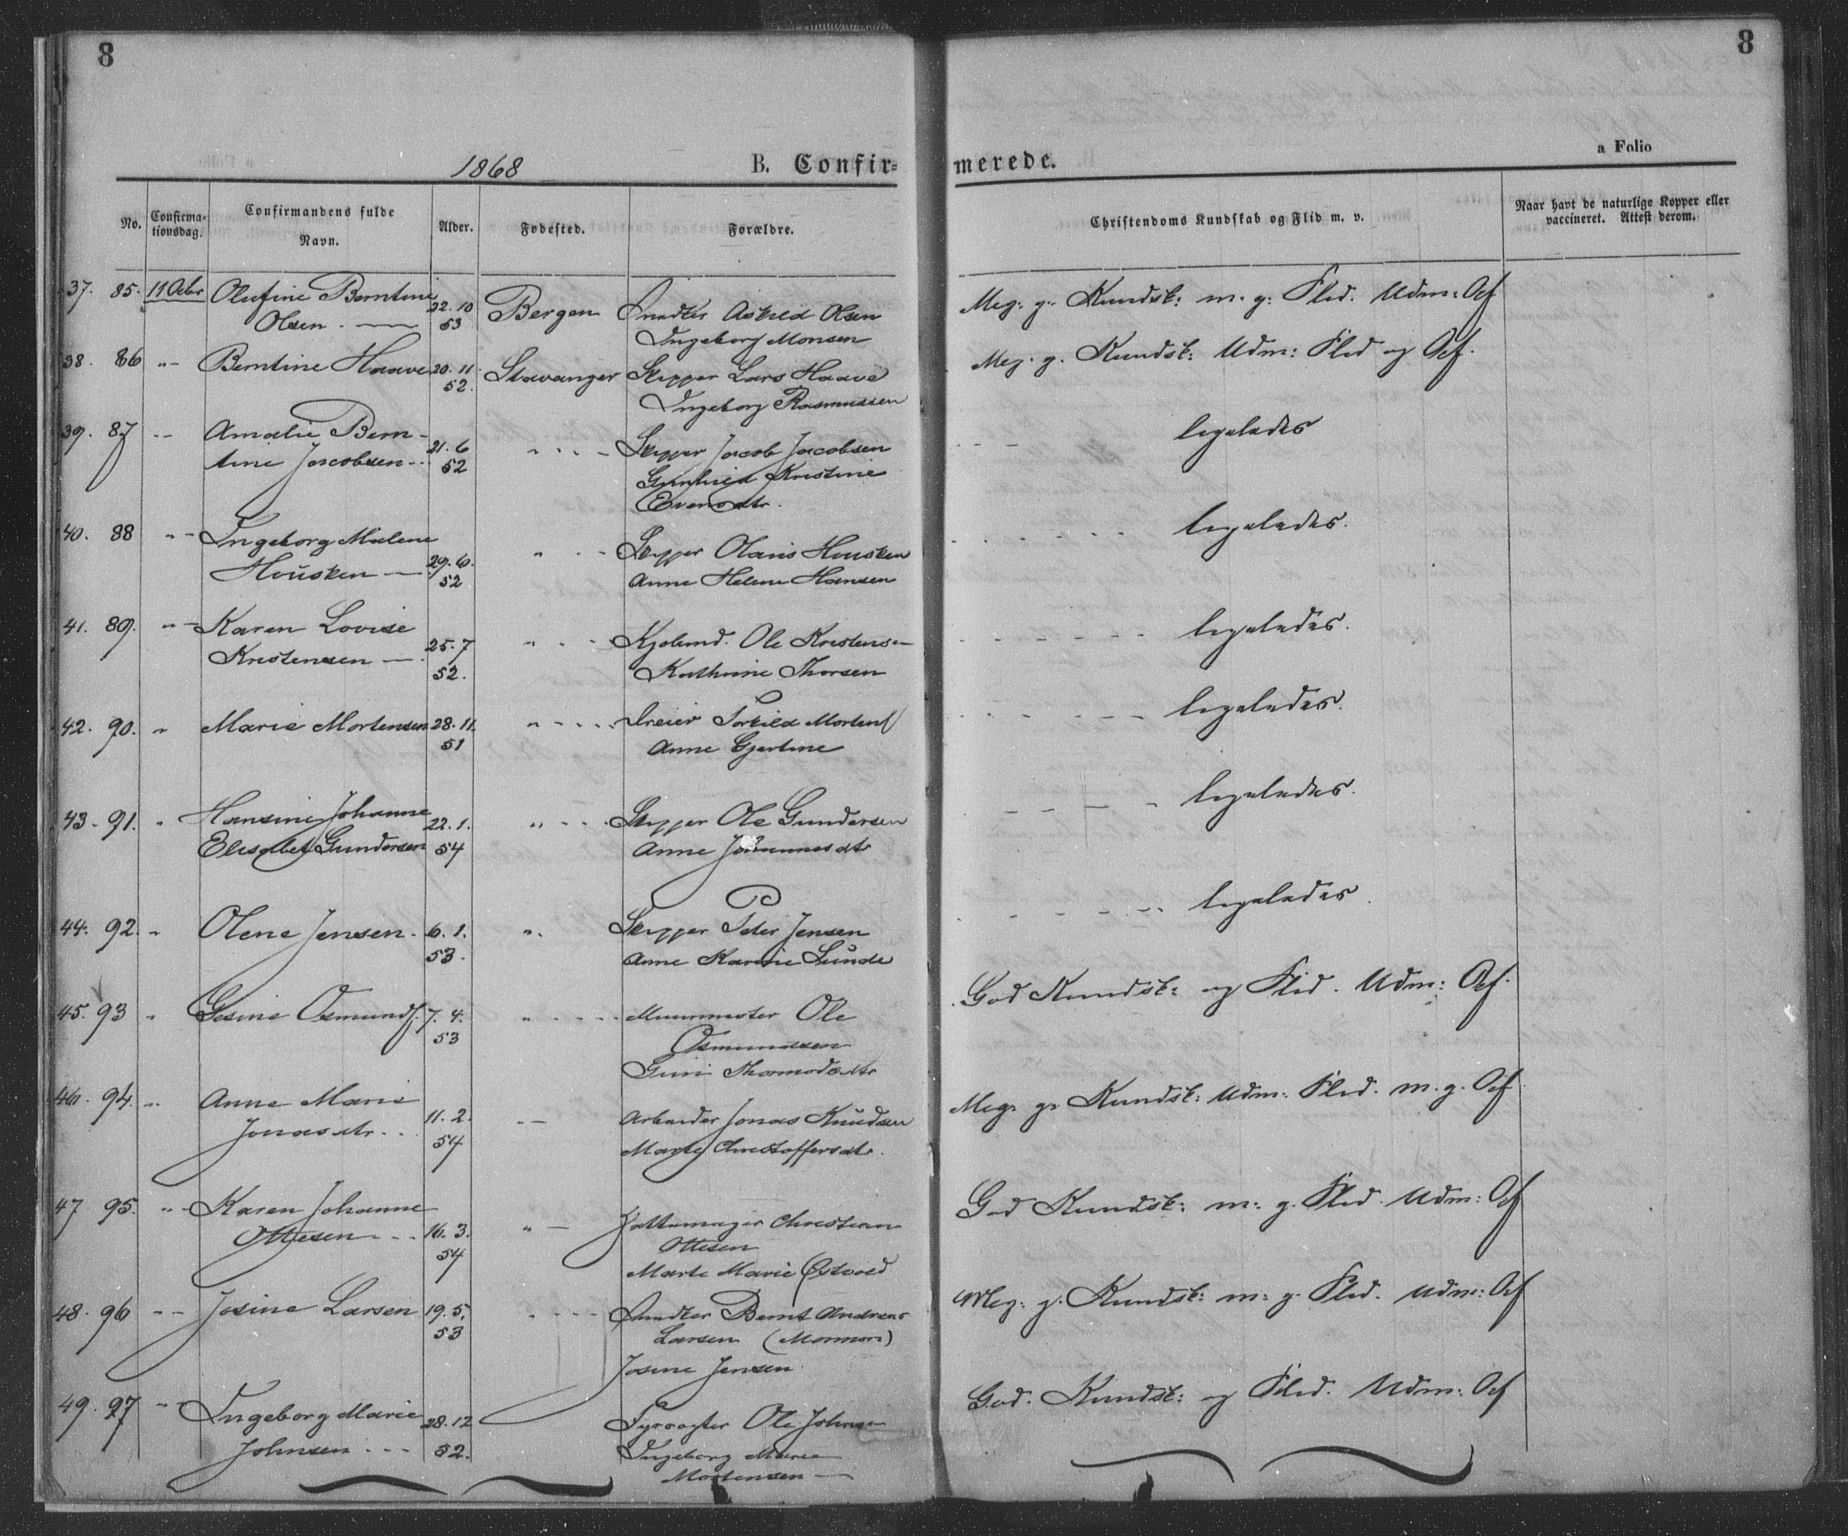 8
8
1868 B. Confir-
merede.
a Folio
No. Confirma-
tionsdag. Confirmandens fulde
Navn. Alder. Fødested. Forældre. Christendoms Kundskab og Flid m. v. Naar havt de naturlige Kopper eller
vaccineret. Attest derom.
37. 85. 11 Octbr Olufine Berntine
Olsen. 22. 10
53 Bergen Snedker Askild Olsen
Ingeborg Monsen Meg. g. Kundsk: m. g. Flid. Udm: Opf
38. 86 " Berntine Haave 20. 11.
52. Stavanger Skipper Lars Haave
Ingeborg Rasmussen Meg. g. Kundsk: Udm: Flid og Opf.
39. 87 " Amalie Bern-
tine Jacobsen 21. 6
52 " Skipper Jacob Jacobsen
Gunhild Kristine
Evensdtr. ligeledes
40. 88 " Ingeborg Malene
Housken 29. 6.
52 " Skipper Claus Housken
Anne Helene Hansen ligeledes.
41. 89. " Karen Lovise
Kristensen 25. 7
52. " Ole Kristensen
Kathrine Thorsen ligeledes.
42. 90. " Marie Mortensen 28. 11.
51 " Dreier Torkild Mortens
Anne Gjertine ligeledes.
43. 91. " Hansine Johanne
Elisabet Gundersen 22. 1.
54 " Skipper Ole Gundersen
Anne Johannesdtr ligeledes.
44. 92. " Olene Jensen. 6. 1.
53. " Skipper Peder Jensen
Anne Karine Lunde ligeledes.
45. 93 " Gesine Osmunds. 7. 4.
53 " Muurmester Ole
Osmundsen
Guri Thormodsdtr God Kundsk: og Flid. Udm: Opf.
46. 94. " Anne Marie
Jonasdtr. 11. 2.
54 " Arbeider Jonas Knudsen
Marte Christoffersdtr. Meg. g. Kundsk: Udm: Flid. m. g. Opf
47 95. " Karen Johanne
Ottesen 16. 3.
54 " Christian
Ottesen
Marte Marie Østvold God Kundsk: m: g. Flid. Udm: Opf
48. 96 " Josine Larsen 19. 5.
53 " Snedker Bernt Andreas
Larsen (Mormon)
Josine Jensen. Meg: g. Kundsk: m: g. Flid. Udm: Opf
49. 97 " Ingeborg Marie
Johnsen 28. 12
52. " Fyrvogter Ole Johnsen
Ingeborg Marie
Mortensen God. Kundsk: og Flid. Udm: Opf